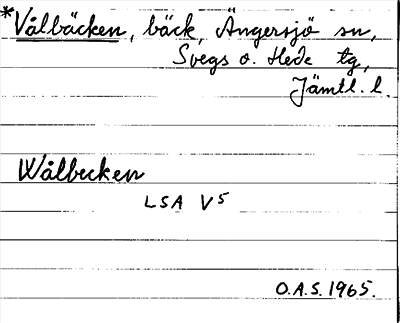 *Vålbäcken, bäck, Ängersjö sn,
Svegs o. Hede tg,
Jämtl. l.
Wålbecken
LSA V5
O.A.S. 1965.